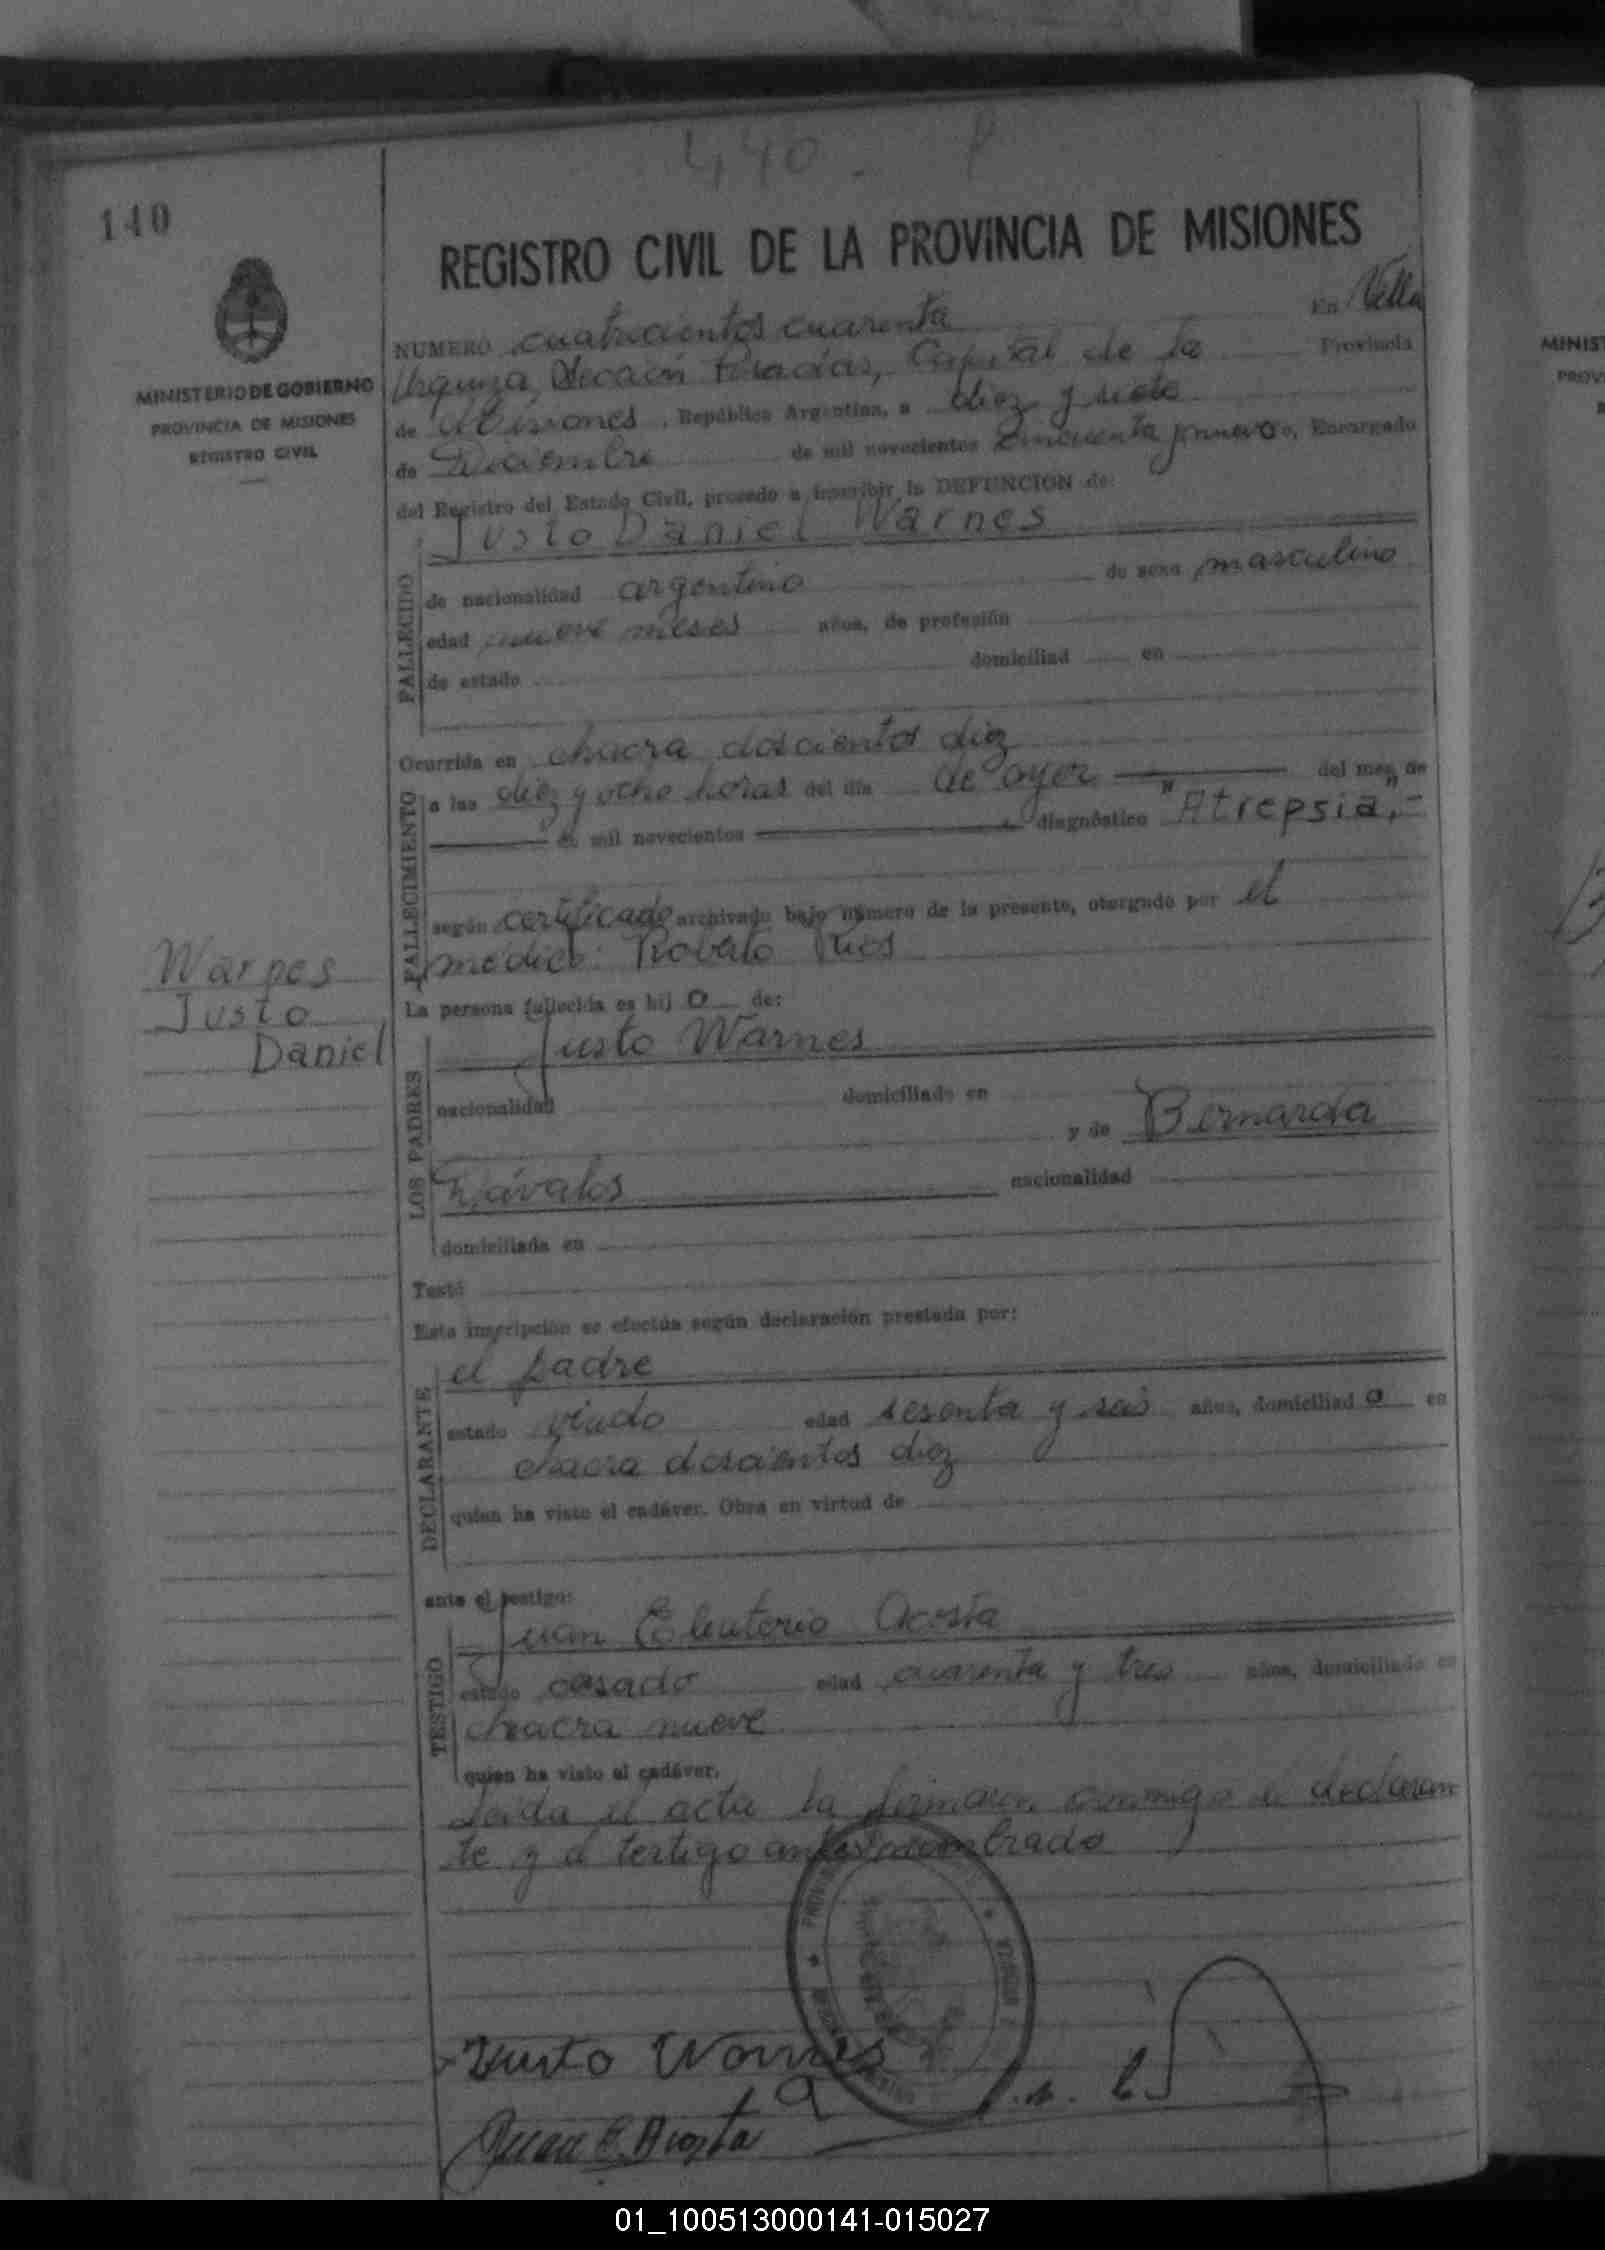 440.
140
REGISTRO CIVIL DE LA PROVINCIA DE MISIONES
MINISTERIO DE GOBIERNO
PROVINCIA DE MISIONES
REGISTRO CIVIL
NUMERO cuatrocientos cuarenta En Villa
Urquiza, Sección Posadas, Capital de la Provincia
de Misiones, República Argentina, a diez y siete
de Diciembre de mil novecientos cincuenta y nueve, Encargado
del Registro del Estado Civil, procedo a inscribir la DEFUNCION de:
Justo Daniel Warnes
FALLECIDO
de nacionalidad argentino de sexo masculino
edad nueve meses años, de profesión
de estado domiciliad en
Ocurrida en chacra doscientos diez
FALLECIMIENTO
a las diez y ocho horas del día de ayer del mes de
de mil novecientos diagnóstico "Atrepsia",-
según certificado archivado bajo número de la presente, otorgado por el
médico: Rios
Warnes
Justo
Daniel
La persona fallecida es hijo de:
LOS PADRES
Justo Warnes
nacionalidad domiciliado en
y de Bernarda
nacionalidad
domiciliada en
Testó
Esta inscripción se efectúa según declaración prestada por:
DECLARANTE
el padre
estado viudo edad sesenta y seis años, domiciliado en
chacra doscientos diez
quien ha visto el cadáver. Obra en virtud de
ante el testigo:
TESTIGO
Juan Eleuterio Acosta
estado casado edad cuarenta y tres años, domiciliado en
chacra nueve
quien ha visto el cadáver.
Leida el acta la firmaron conmigo el declaran
te y el testigo antes nombrado
Justo Warnes
Juan E. Acosta
01_100513000141-015027